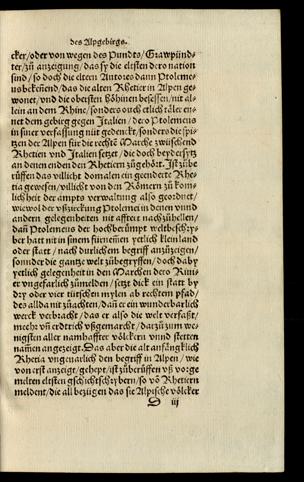 des Alpgebirgs.
cker/oder von wegen des Pundts/Grawpünd-
ter/zů anzeigung/das sy die eltisten dero nation
sind/so doch die eltern Autores dann Ptoleme-
us bekēnend/das die alten Rhetier in Alpen ge-
wonet/vnd die obersten höhinen besessen/nit al-
lein an dem Rhine/sonders ouch etlich täler en-
net dem gebirg gegen Italien/dero Ptolemeus
in siner verfassung nüt gedenckt/sonders die spi-
tzen der Alpen für die rechtē Marche zwüschend
Rhetien vnd Italien setzt/die doch beydersytz
an denen enden den Rhetiern zůgehört. Ist zübe
rüffen das villicht domalen ein geenderte Rhe-
tia gewesen/villicht von den Römern zů kom-
licheit der ampts verwaltung also geordnet/
wiewol der vßzirckung Ptolemei in denen vnnd
andern gelegenheiten nit allzeit nachzühellen/
dañ Ptolemeus der hochberümpt weltbeschry-
ber hatt nit in sinem fürnemē yetlich klein land
oder statt/nach durlichem begriff anzüzeigen/
sonnder die gantze welt zübegryffen/doch daby
yetlich gelegenheit in den Marchen dero Rivi-
er vngefarlich zümelden/setzt dick ein statt by
dry oder vier tütschen mylen ab rechtem pfad/
des alldo nit züachten/dañ er ein wunderbarlich
werck verbracht/das er also die welt verfaßt/
mehr vñ erdtrich vßgemarcht/darzü zum we-
nigsten aller namhaffter völckern vnnd stetten
namen angezeigt. Das aber die alt anfängklich
Rhetia vngenarlich den begriff in Alpen/wie
von erst anzeigt/gehept/ist züberüffen vß vorge
melten eltisten gschichtschrybern/so võ Rhetiern
meldent/die all bezügen das sie Alpische völcker
D iij